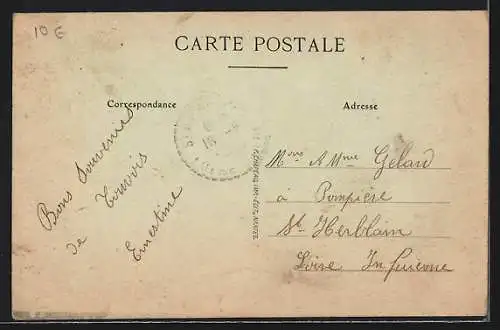 10 €
CARTE POSTALE
Correspondance
Adresse
Bons Souvenirs
de Touvois
Ernestine
Mons & Mme Gélard
à Pompière
St Herblain
Loire Inférieure